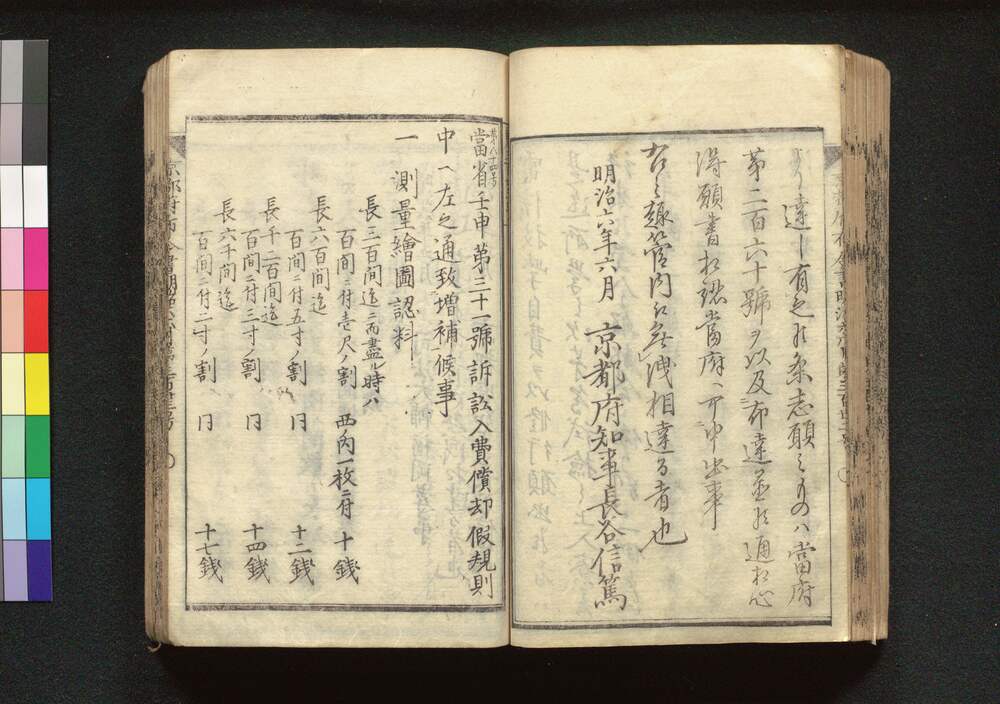 達シ有之候条志願之ものハ當府
第二百六十號ヲ以及布達並候通相心
得願書相認當府ヘ可申出事
右之趣管内江無洩相達る者也
明治六年六月 京都府知事長谷信篤
第八十五号
當省壬申第三十一號訴訟入費償却假規則
中ヘ左之通致増補候事
一 測量繪圖認料
長三百間迄ニ而盡ル時ハ
百間ニ付壱尺ノ割 西ノ内一枚ニ付 十銭
長六百間迄
百間ニ付五寸ノ割 同 十二銭
長千二百間迄
百間ニ付三寸ノ割 同 十四銭
長六千間迄
百間ニ付二寸ノ割 同 十七銭